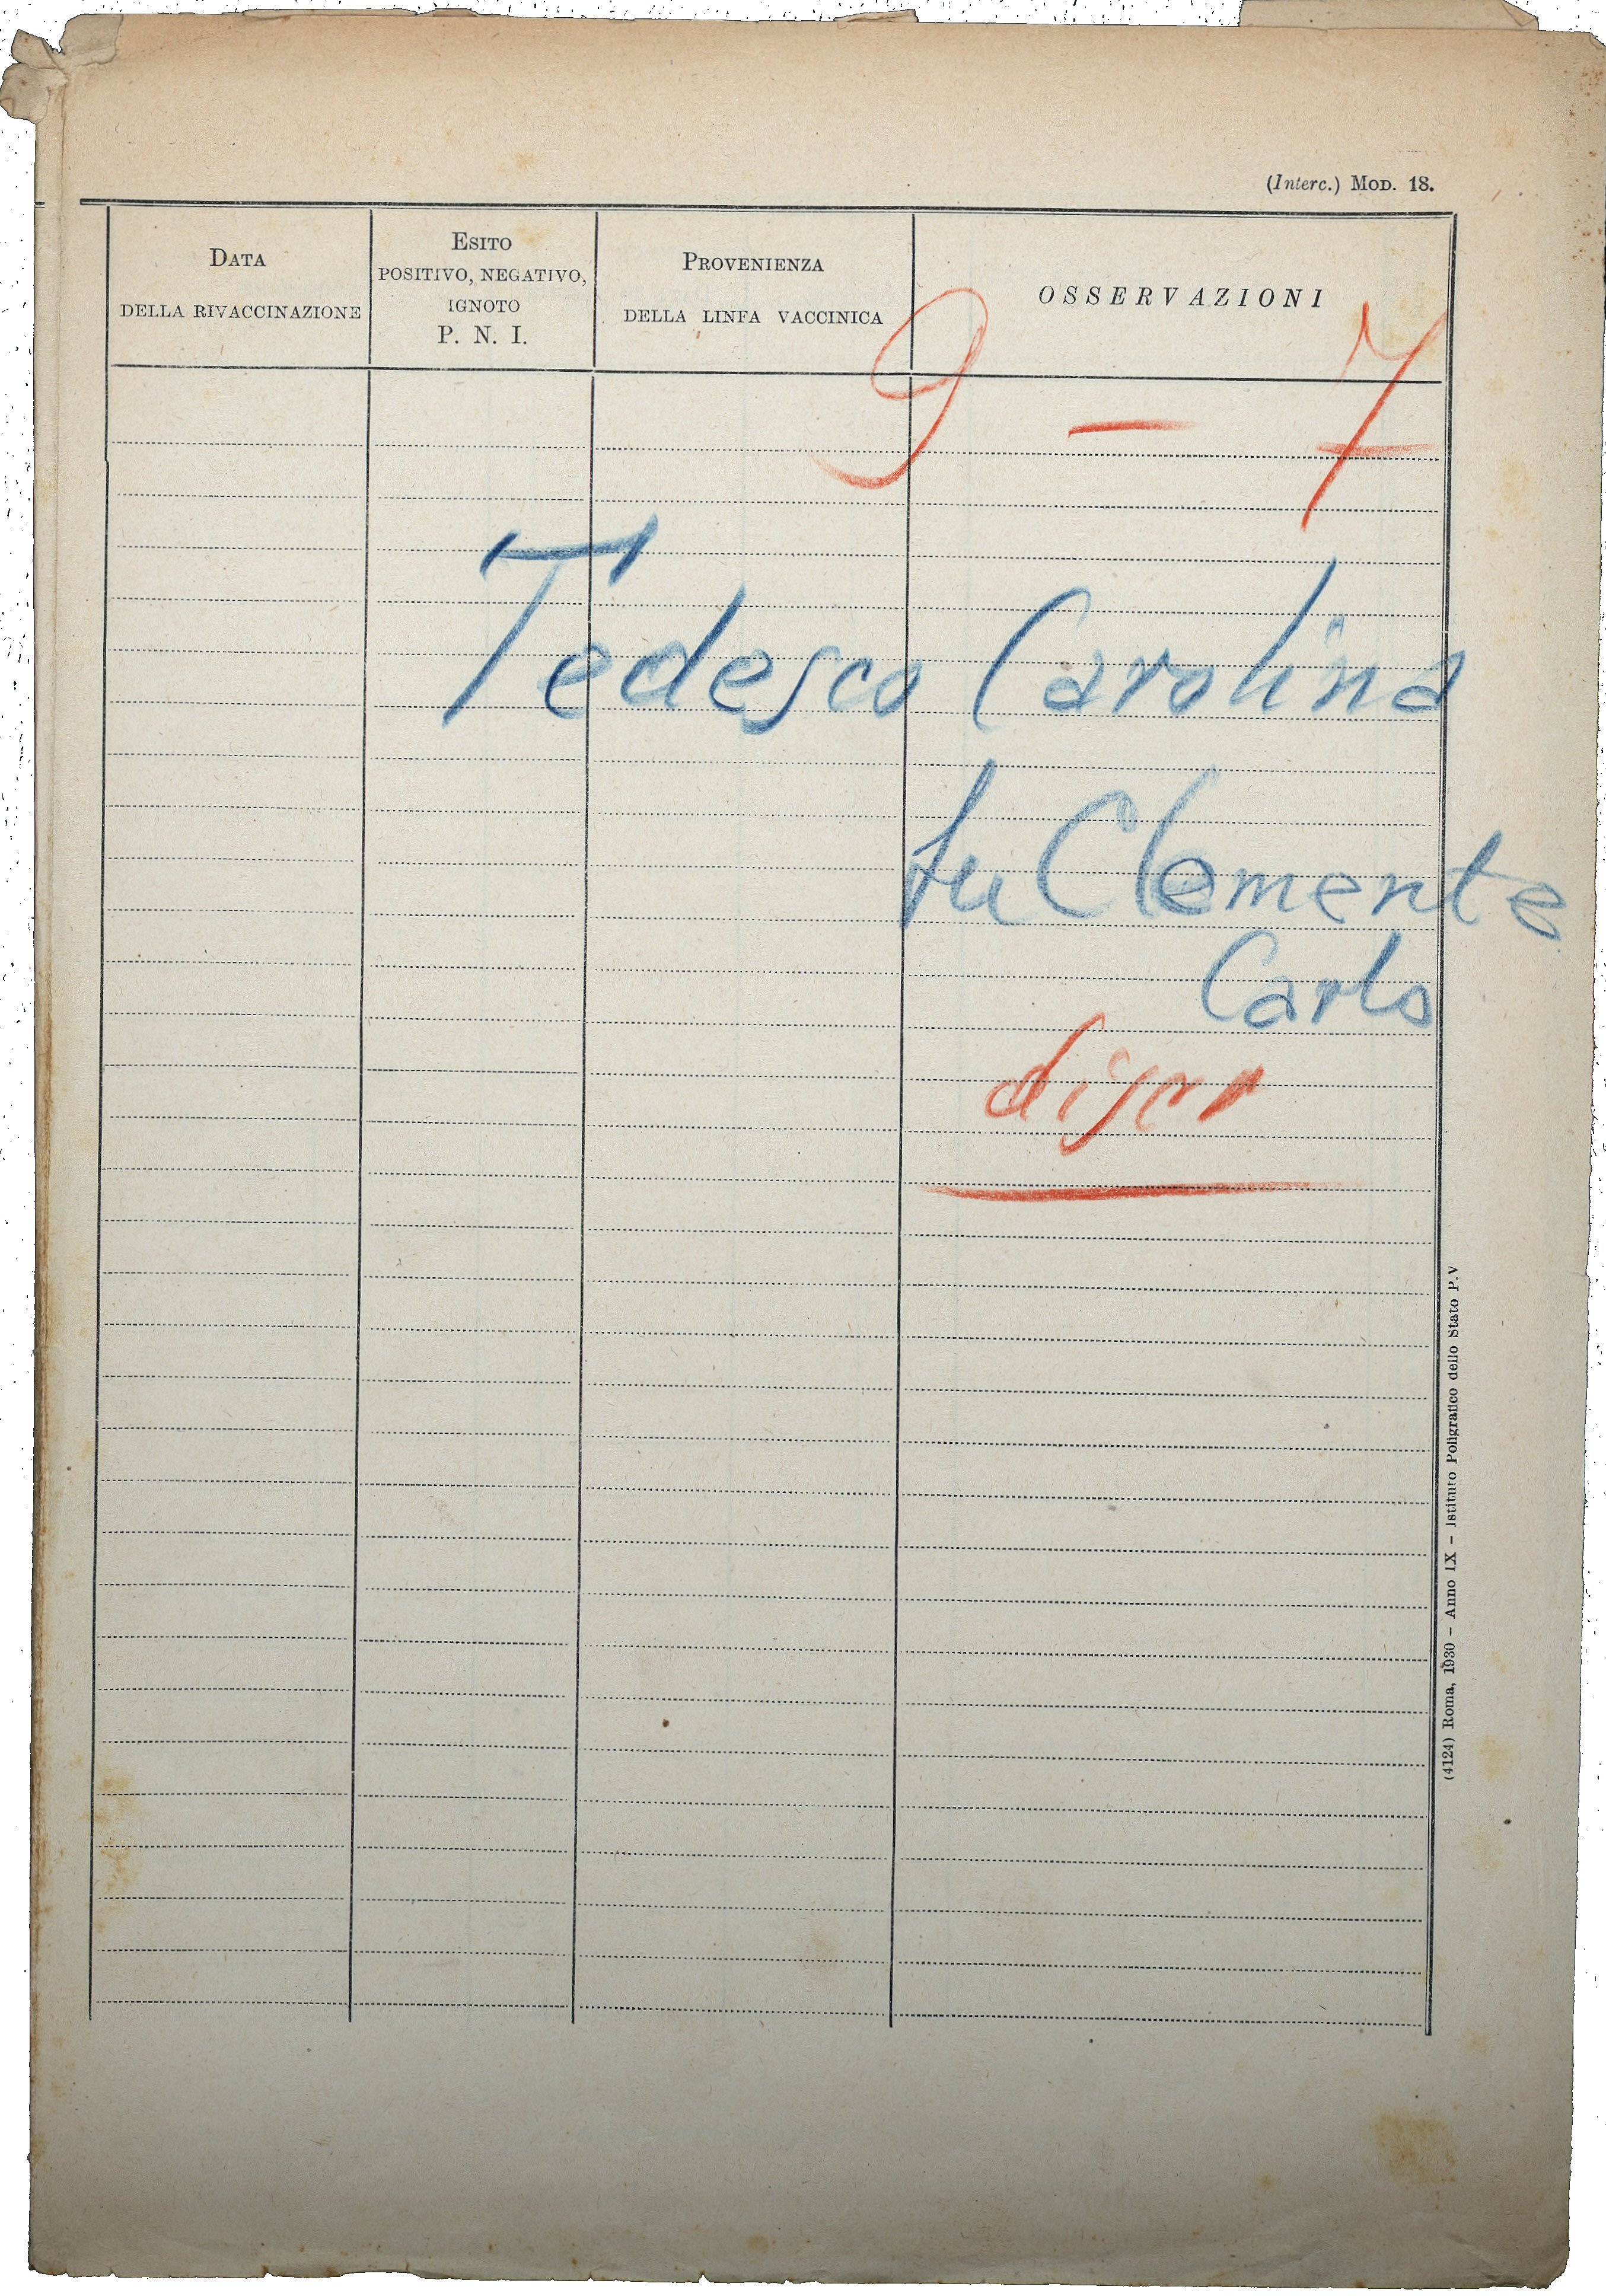 (Interc.) MOD. 18.
DATA
DELLA RIVACCINAZIONE
ESITO
POSITIVO, NEGATIVO,
IGNOTO
P. N. I.
PROVENIENZA
DELLA LINFA VACCINICA
OSSERVAZIONI
9 — 7
Tedesco Carolina
fu Clemente
Carlo
(4124) Roma, 1930 – Anno IX – Istituto Poligrafico dello Stato P.V